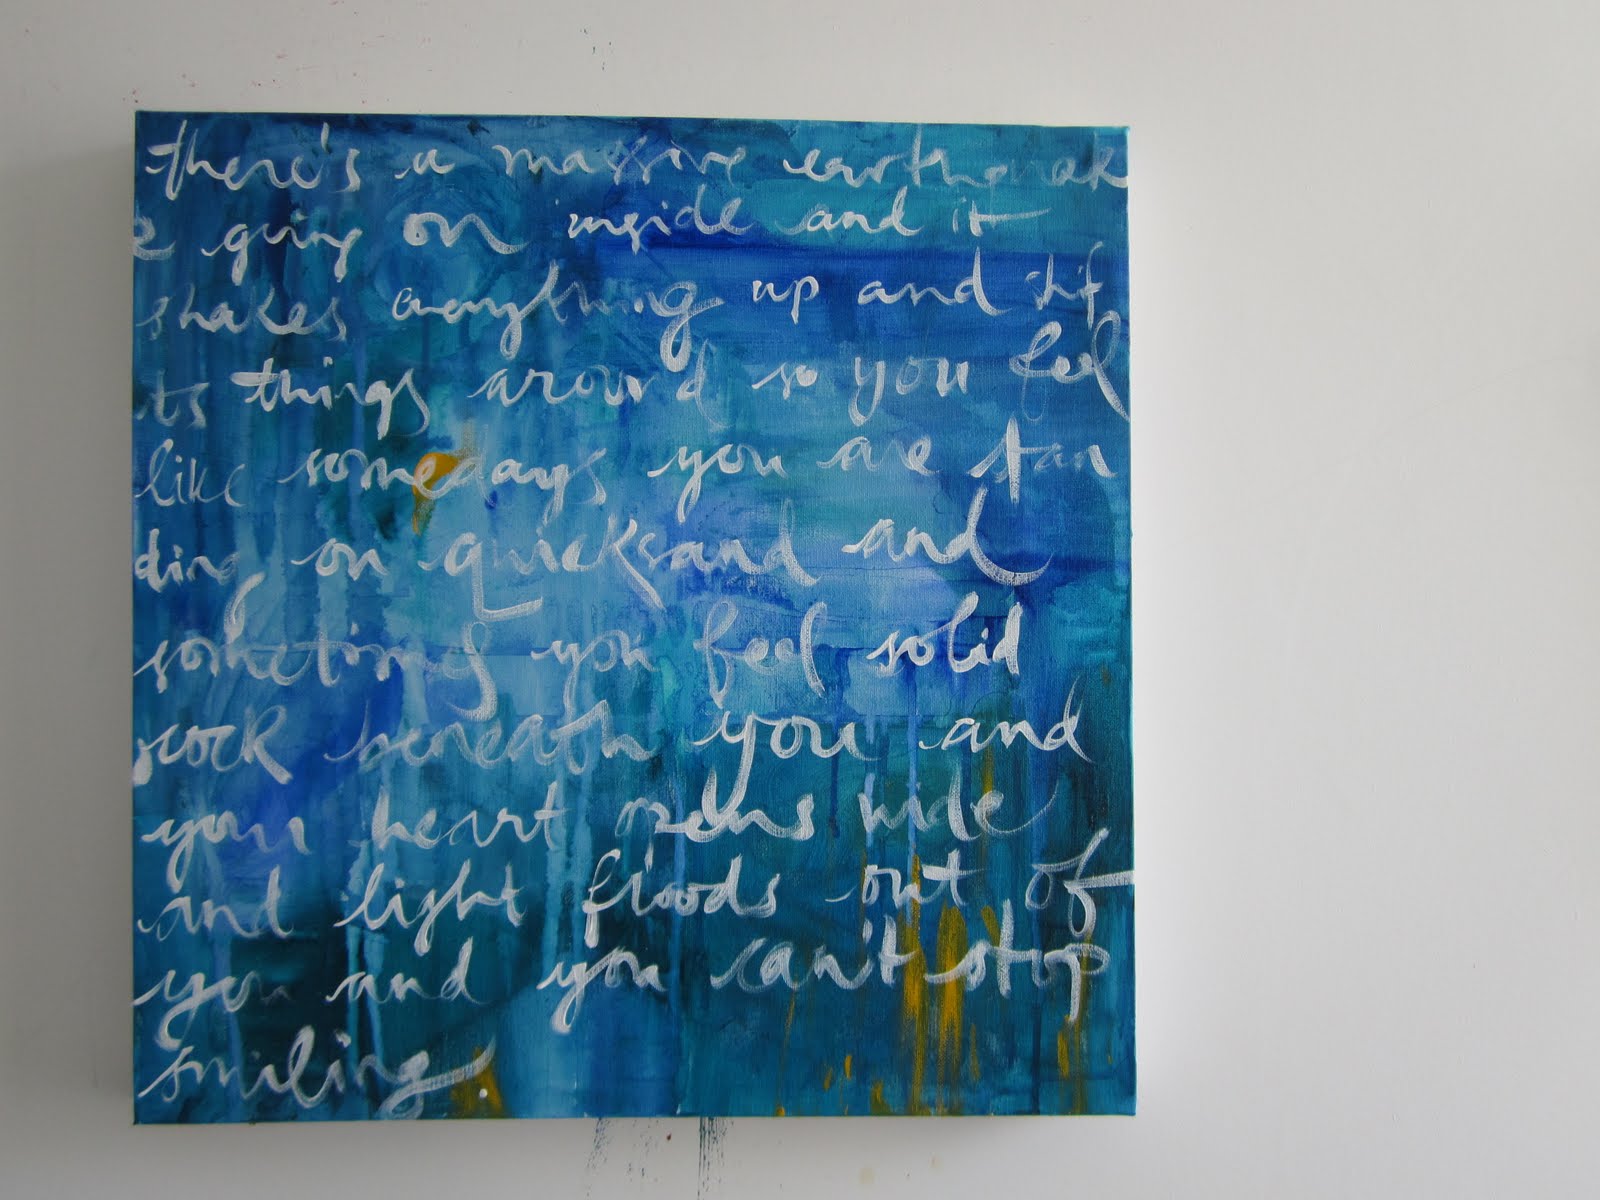 there's a massive earthquak
e going on inside and it
shakes everything up and shif
ts things around so you feel
like somedays you are stan
ding on quicksand and
sometimes you feel solid
rock beneath you and
your heart opens wide
and light floods out of
you and you can't stop
smiling.